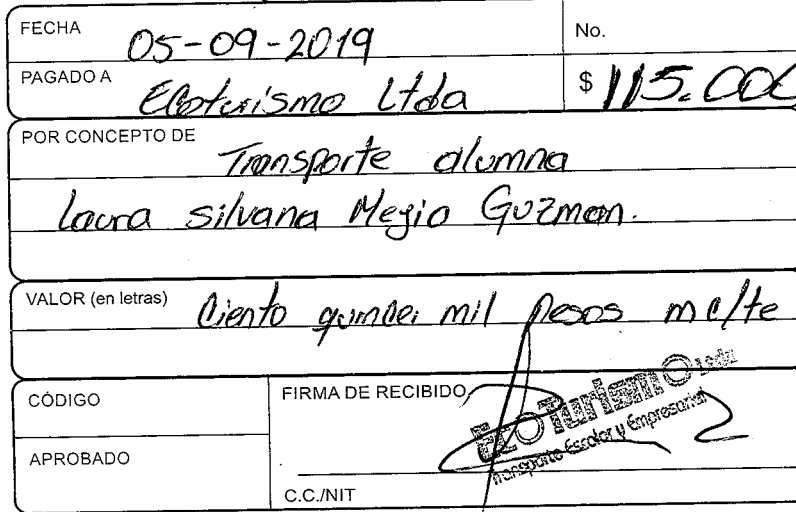 FECHA 05-09-2019 No.
PAGADO A Ecoturismo Ltda $ 115.000
POR CONCEPTO DE Transporte alumna
Laura Silvana Megia Guzman.
VALOR (en letras) Ciento quince mil pesos mc/te
CÓDIGO FIRMA DE RECIBIDO
APROBADO EcoTurismo Ltda
Transporte Escolar y Empresarial
C.C./NIT